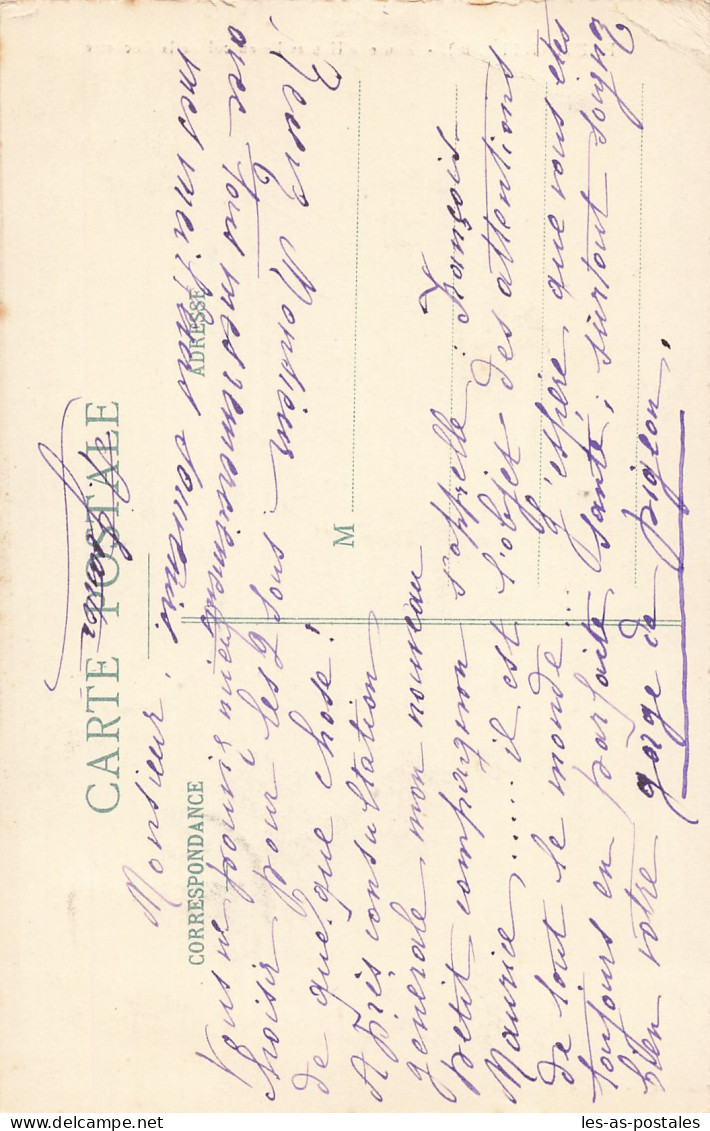 CARTE POSTALE
CORRESPONDANCE
ADRESSE
M
Monsieur,
Vous ne pouviez mieux
choisir pour les 4 sous
de quelque chose!
Après consultation
générale mon nouveau
petit compagnon s'appelle : François-
Maurice,..... il est l'objet des attentions
de tout le monde... J'espère que vous êtes
toujours en parfaite santé; surtout soignez
bien votre gorge de pigeon.
Recevez Monsieur
avec tous mes remerciements
mes meilleurs souvenirs
les-as-postales